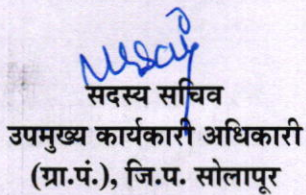 सदस्य सचिव
उपमुख्य कार्यकारी अधिकारी
(ग्रा.पं.), जि.प. सोलापूर